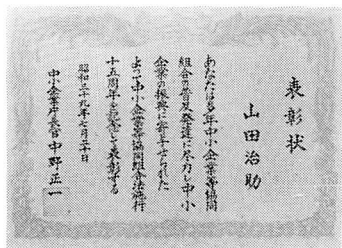 表彰状
山田治助
あなたは多年中小企業等協同
組合の普及発達に尽力し中小
企業の振興に寄与せられた
よって中小企業等協同組合法施行
十五周年を記念して表彰する
昭和三十九年七月二十日
中小企業庁長官中野正一